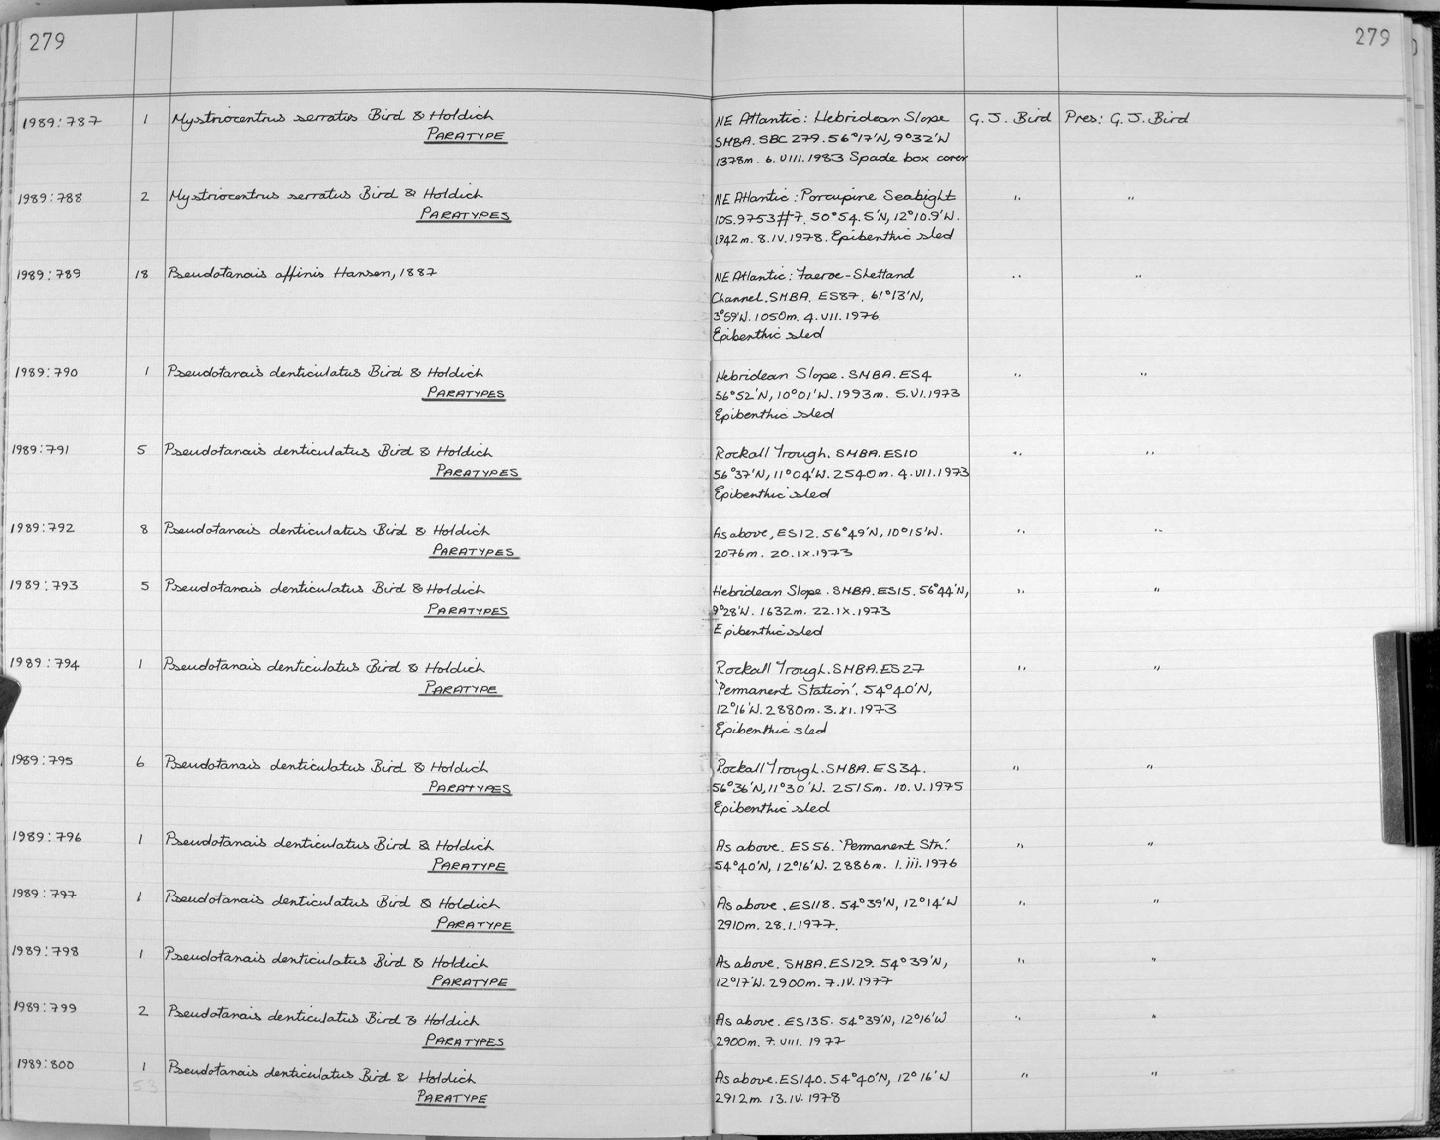 279
279
1989:787 1 Mystriocentrus serratus Bird & Holdich NE Atlantic: Hebridean Slope G.J. Bird Pres: G.J. Bird
PARATYPE SMBA. SBC 279. 56°17'N, 9°32'W
1378m. 6.VIII.1983 Spade box corer
1989:788 2 Mystriocentrus serratus Bird & Holdich NE Atlantic: Porcupine Seabight " "
PARATYPES IOS.9753#7. 50°54.5'N, 12°10.9'W.
1942m. 8.IV.1978. Epibenthic sled
1989:789 18 Pseudotanais affinis Hansen, 1887 NE Atlantic: Faeroe-Shetland " "
Channel. SMBA. ES87. 61°13'N,
3°59'W. 1050m. 4.VII.1976
Epibenthic sled
1989:790 1 Pseudotanais denticulatus Bird & Holdich Hebridean Slope. SMBA. ES4 " "
PARATYPES 56°52'N, 10°01'W. 1993m. 5.VI.1973
Epibenthic sled
1989:791 5 Pseudotanais denticulatus Bird & Holdich Rockall Trough. SMBA. ES10 " "
PARATYPES 56°37'N, 11°04'W. 2540m. 4.VII.1973
Epibenthic sled
1989:792 8 Pseudotanais denticulatus Bird & Holdich As above, ES12. 56°49'N, 10°15'W. " "
PARATYPES 2076m. 20.IX.1973
1989:793 5 Pseudotanais denticulatus Bird & Holdich Hebridean Slope. SMBA. ES15. 56°44'N, " "
PARATYPES 9°28'W. 1632m. 22.IX.1973
Epibenthic sled
1989:794 1 Pseudotanais denticulatus Bird & Holdich Rockall Trough. SMBA. ES27 " "
PARATYPE 'Permanent Station'. 54°40'N,
12°16'W. 2880m. 3.XI.1973
Epibenthic sled
1989:795 6 Pseudotanais denticulatus Bird & Holdich Rockall Trough. SMBA. ES34. " "
PARATYPES 56°36'N, 11°30'W. 2515m. 10.V.1975
Epibenthic sled
1989:796 1 Pseudotanais denticulatus Bird & Holdich As above. ES56. 'Permanent Stn.' " "
PARATYPE 54°40'N, 12°16'W. 2886m. 1.iii.1976
1989:797 1 Pseudotanais denticulatus Bird & Holdich As above. ES118. 54°39'N, 12°14'W " "
PARATYPE 2910m. 28.1.1977.
1989:798 1 Pseudotanais denticulatus Bird & Holdich As above. SMBA. ES129. 54°39'N, " "
PARATYPE 12°17'W. 2900m. 7.IV.1977
1989:799 2 Pseudotanais denticulatus Bird & Holdich As above. ES135. 54°39'N, 12°16'W " "
PARATYPES 2900m. 7.VIII.1977
1989:800 1 Pseudotanais denticulatus Bird & Holdich As above. ES140. 54°40'N, 12°16'W " "
53 PARATYPE 2912m. 13.IV.1978